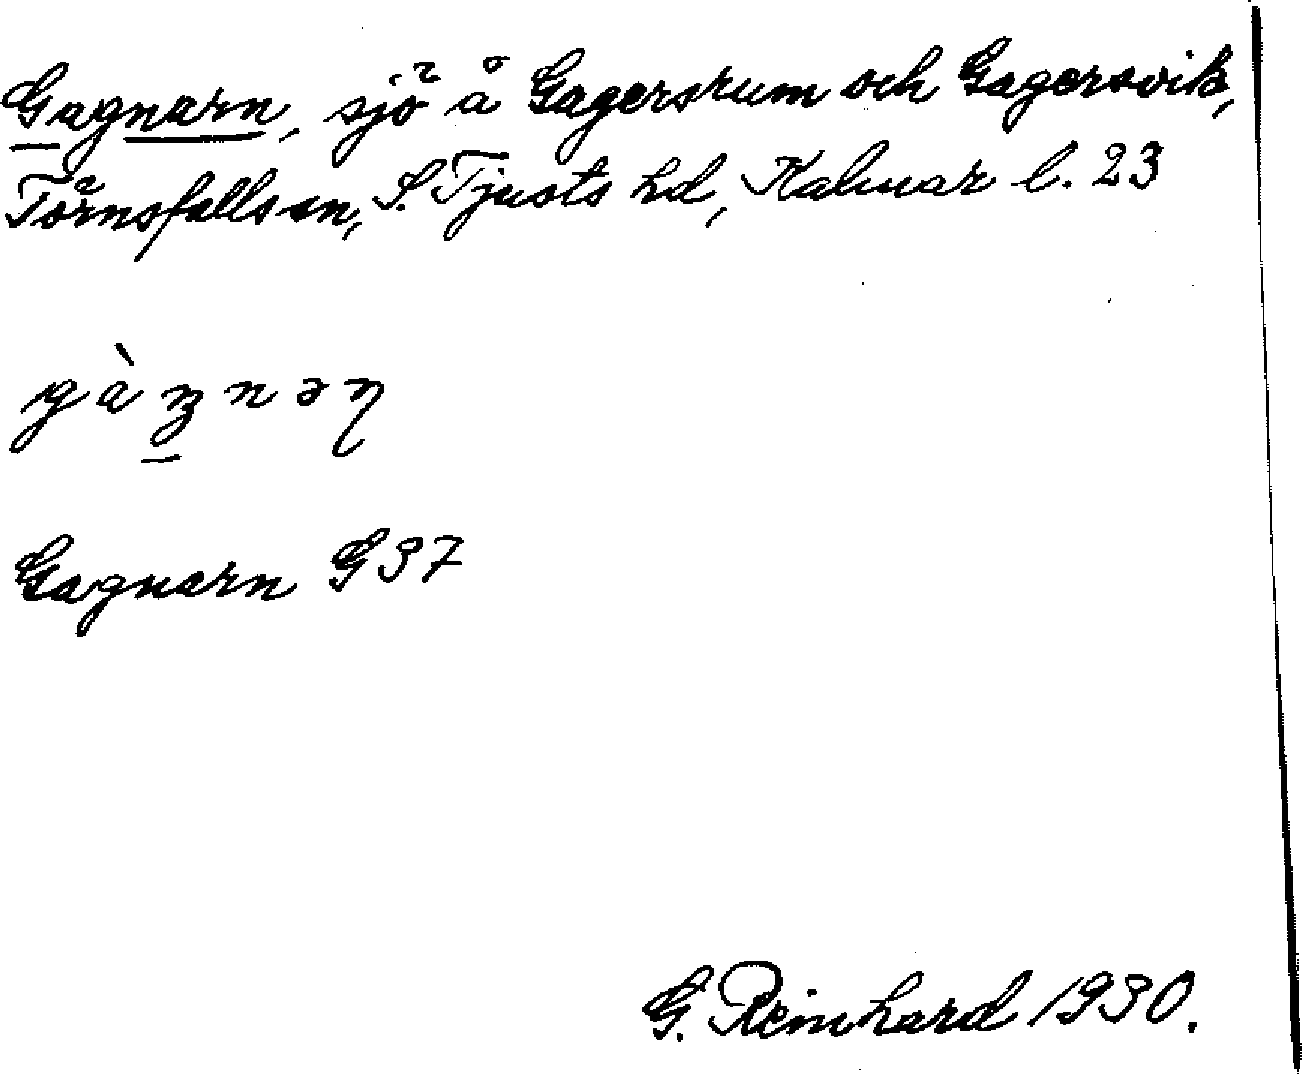 Gagnarn, sjö å Gagersrum och Gagersvik,
Törnsfalls sn, S. Tjusts hd, Kalmar l. 23
Gagnarn G 37
G. Reinhard 1930.